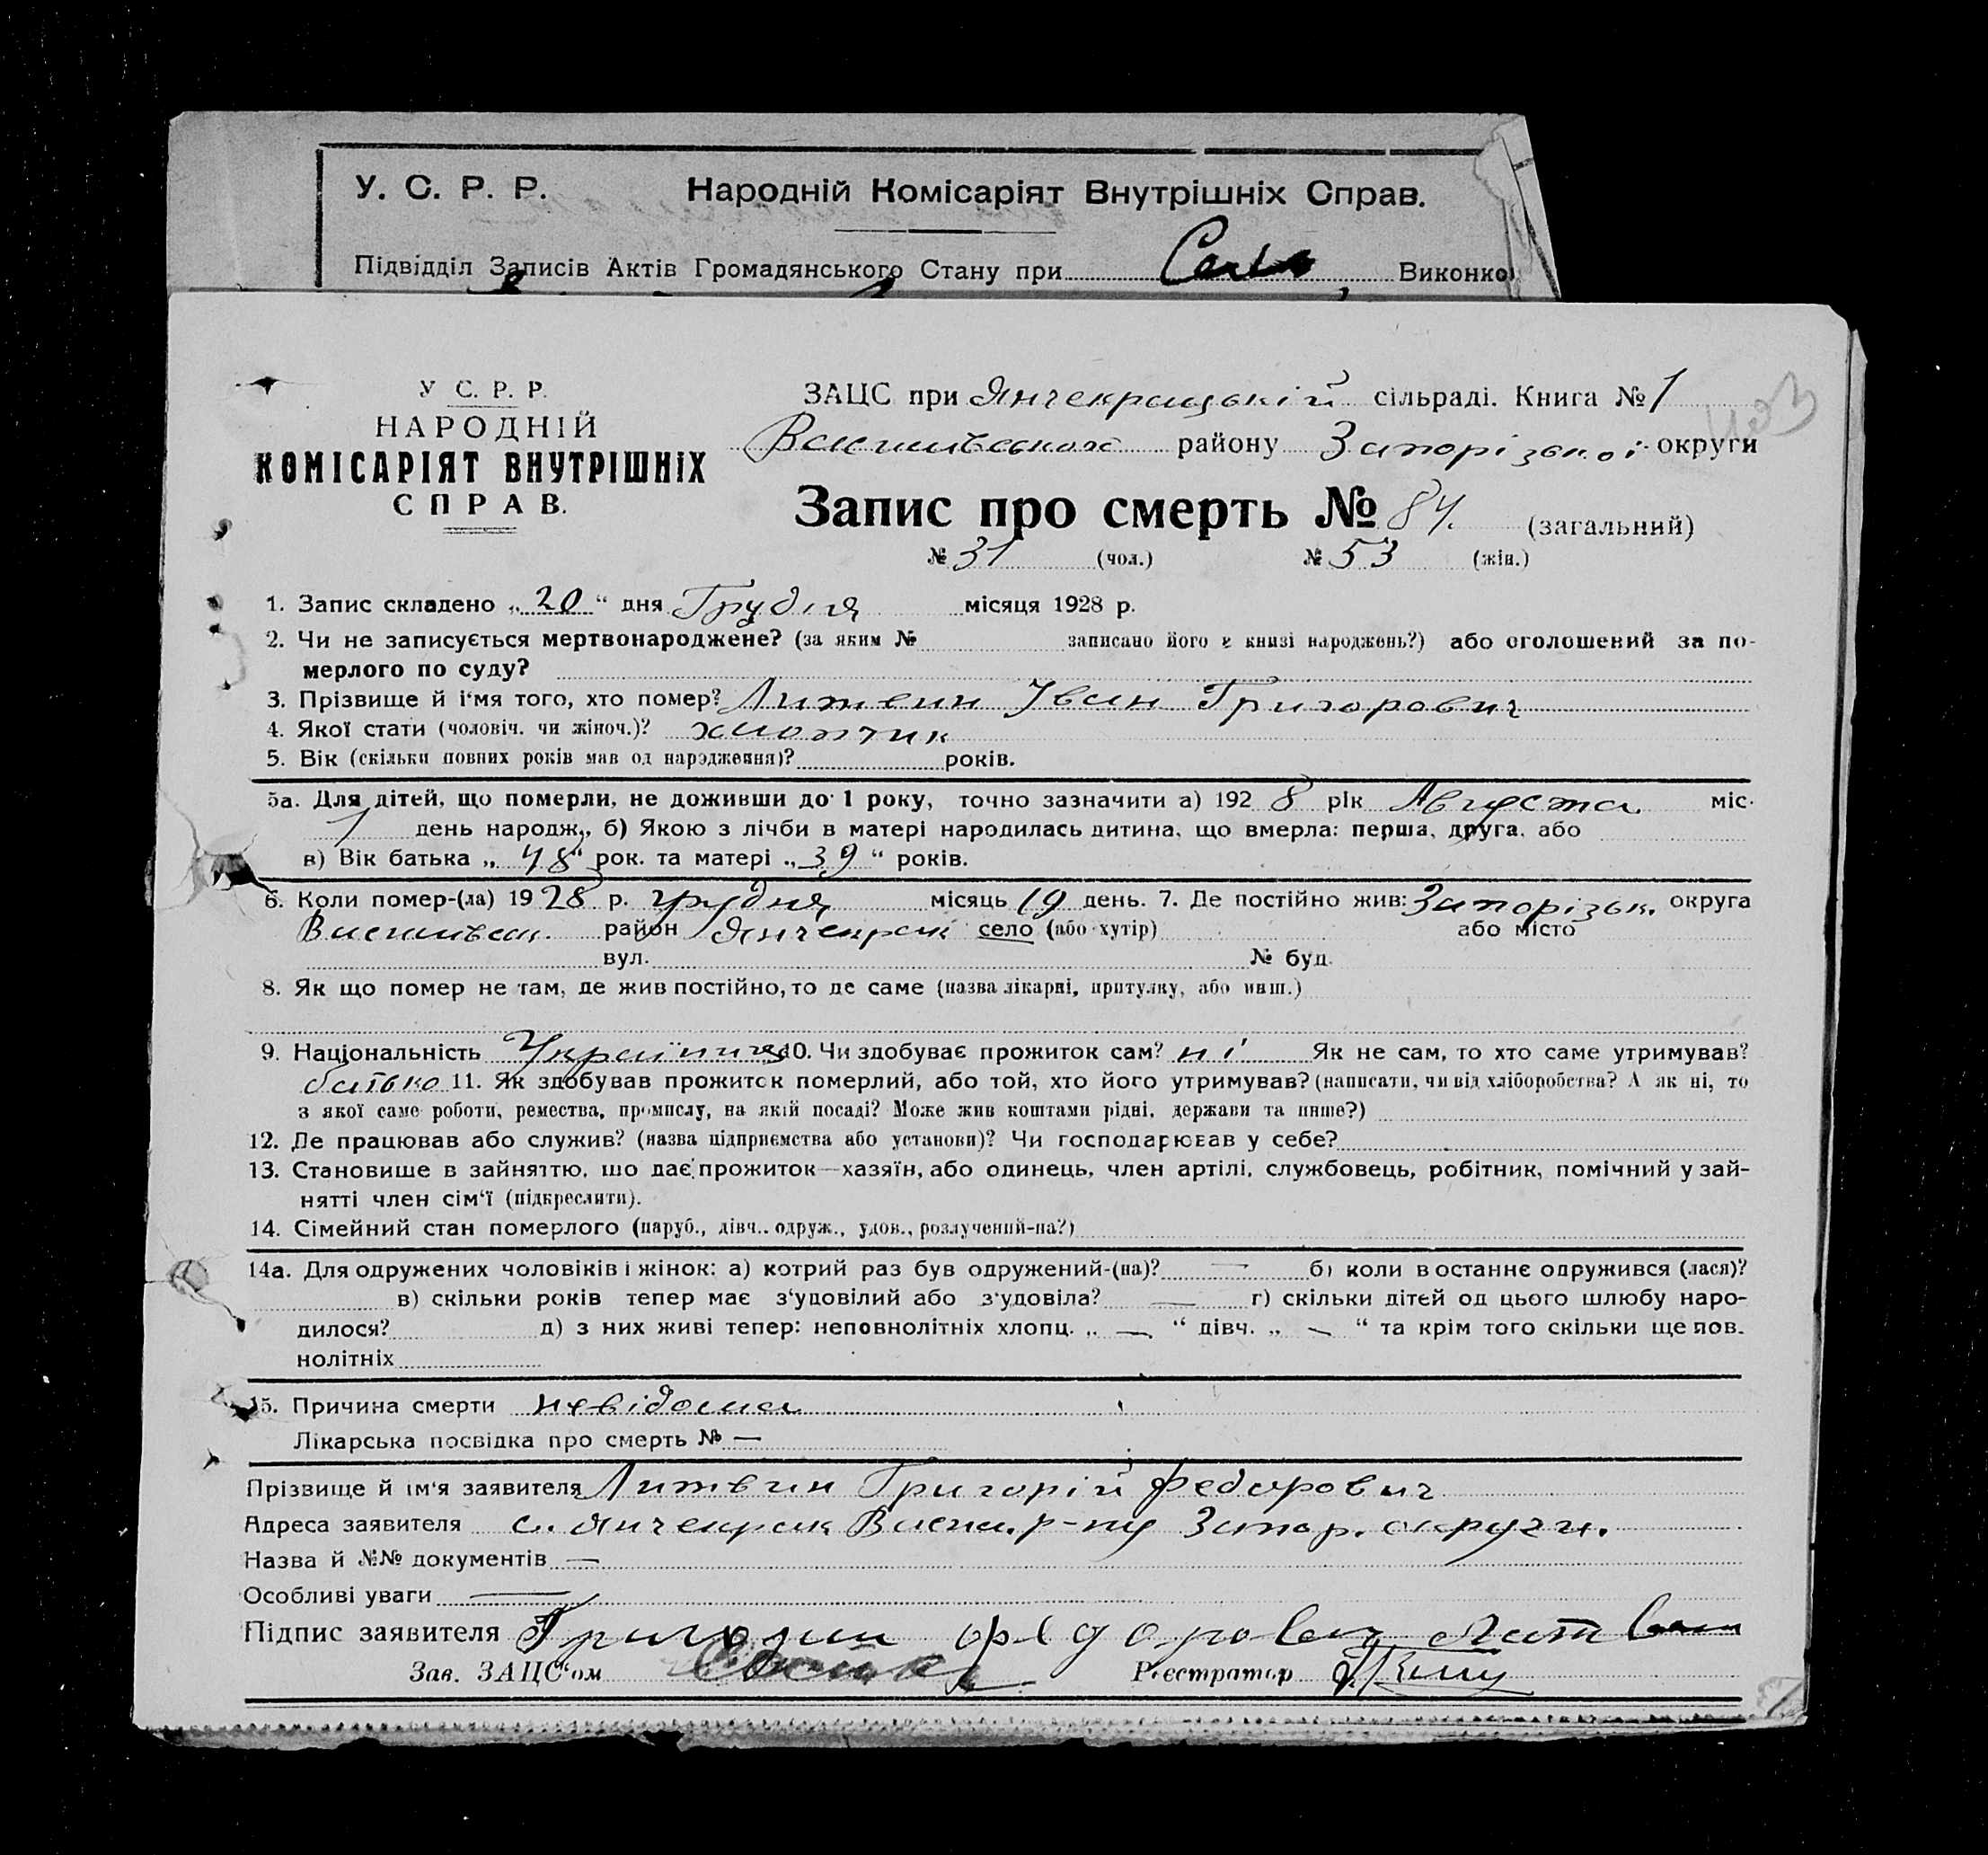 У. С. Р. Р. Народній Комісаріят Внутрішніх Справ.
Підвідділ Записів Актів Громадянського Стану при Виконко
У С. Р. Р.
НАРОДНІЙ
КОМІСАРІЯТ ВНУТРІШНІХ
СПРАВ.
ЗАЦС при Янчекрацькій сільраді. Книга № 1
Василівського району Запорізької округи
Запис про смерть № 84. (загальний)
№ 31 (чол.) № 53 (жін.)
1. Запис складено „ 20 “ дня Грудня місяця 1928 р.
2. Чи не записується мертвонароджене? (за яким № записано його в книзі народжень?) або оголошений за по-
мерлого по суду?
3. Прізвище й і'мя того, хто помер? Литвин Іван Григорович
4. Якої стати (чоловіч. чи жіноч.)? хлопчик
5. Вік (скільки повних років мав од народження)? років.
5а. Для дітей, що померли, не доживши до 1 року, точно зазначити а) 192 8 рік Августа міс.
1 день народж., б) Якою з лічби в матері народилась дитина, що вмерла: перша, друга, або
в) Вік батька „ 48 “ рок. та матері „ 39 “ років.
6. Коли помер-(ла) 19 28 р. грудня місяць 19 день. 7. Де постійно жив: Запорізьк. округа
Василівськ. район Янчекрак село (або хутір) або місто
вул. № буд.
8. Як що помер не там, де жив постійно, то де саме (назва лікарні, притулку, або инш.)
9. Національність Українця 10. Чи здобуває прожиток сам? ні Як не сам, то хто саме утримував?
батько 11. Як здобував прожиток померлий, або той, хто його утримував? (написати, чи від хліборобства? А як ні, то
з якої саме роботи, ремества, промислу, на якій посаді? Може жив коштами рідні, держави та инше?)
12. Де працював або служив? (назва підприємства або установи)? Чи господарював у себе?
13. Становище в зайняттю, що дає прожиток—хазяїн, або одинець, член артілі, службовець, робітник, помічний у зай-
нятті член сім'ї (підкреслити).
14. Сімейний стан померлого (паруб., дівч.. одруж., удов., розлучений-на?)
14а. Для одружених чоловіків і жінок: а) котрий раз був одружений-(на)? — б) коли в останнє одружився (лася)?
в) скільки років тепер має з'удовілий або з'удовіла? — г) скільки дітей од цього шлюбу наро-
дилося? д) з них живі тепер: неповнолітніх хлопц. „ — “ дівч. „ — “ та крім того скільки ще пов.
нолітніх
15. Причина смерти невідома
Лікарська посвідка про смерть № —
Прізвище й ім'я заявителя Литвин Григорій Федорович
Адреса заявителя с. Янчекрак Васил. р-ну Запор. округи.
Назва й №№ документів —
Особливі уваги —
Підпис заявителя Григорий Литвин
Зав. ЗАЦС'ом Реєстратор